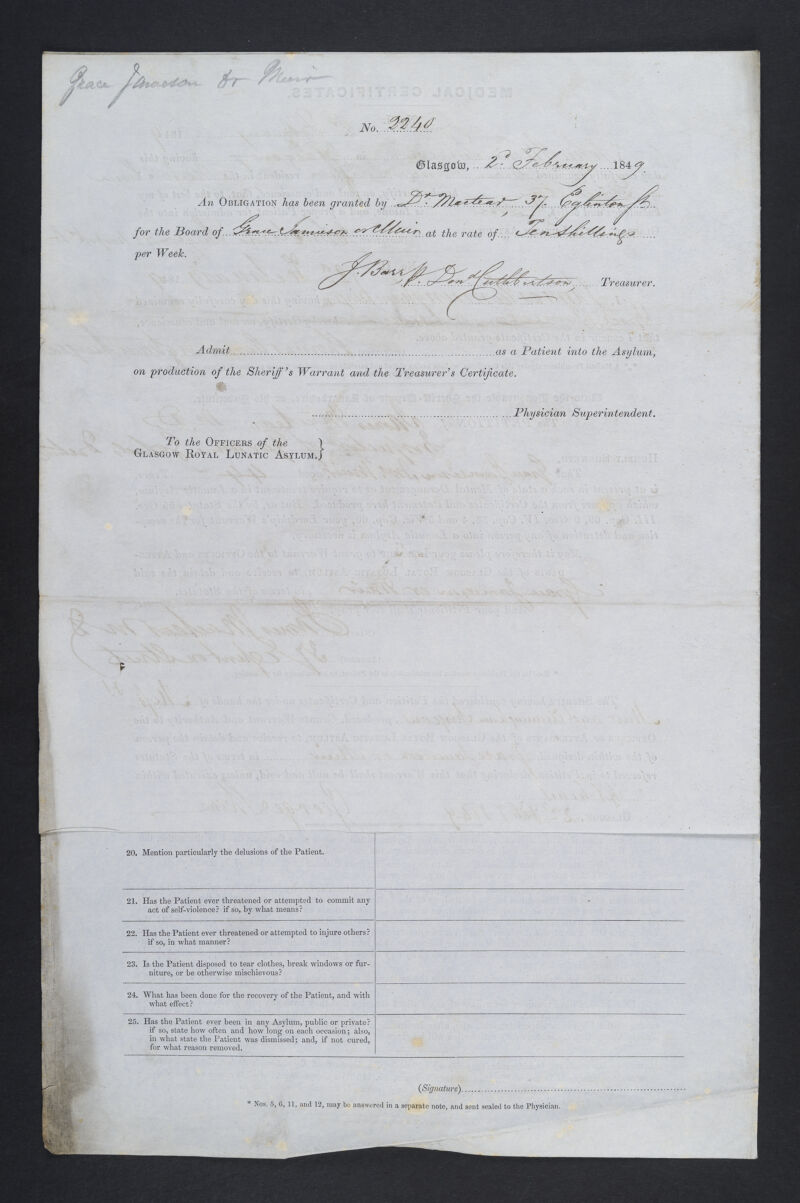 Grace Jamieson or Muir
No. 2240
Glasgow, 2d. February 1849.
An OBLIGATION has been granted by Dr. 37 Eglinton St
for the Board of Grace Jamieson or Muir at the rate of Ten Shillings
per Week.
J. Barr, p. Don Cuthbertson, Treasurer.
Admit as a Patient into the Asylum,
on production of the Sheriff's Warrant and the Treasurer's Certificate.
Physician Superintendent.
To the OFFICERS of the
GLASGOW ROYAL LUNATIC ASYLUM.}
20. Mention particularly the delusions of the Patient.
21. Has the Patient ever threatened or attempted to commit any
act of self-violence? if so, by what means?
22. Has the Patient ever threatened or attempted to injure others?
if so, in what manner?
23. Is the Patient disposed to tear clothes, break windows or fur-
niture, or be otherwise mischievous?
24. What has been done for the recovery of the Patient, and with
what effect?
25. Has the Patient ever been in any Asylum, public or private?
if so, state how often and how long on each occasion; also,
in what state the Patient was dismissed; and, if not cured,
for what reason removed.
(Signature)
* Nos. 5, 6, 11, and 12, may be answered in a separate note, and sent sealed to the Physician.